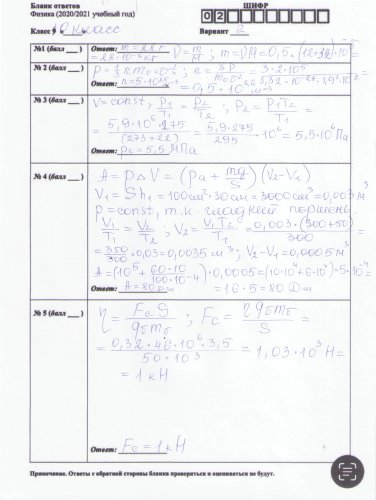 Бланк ответов
ШИФР
Физика (2020/2021 учебный год)
02
Класс 9 10 класс
Вариант 2
№1 (балл ___ )
Ответ: m = 22 г
= 22·10⁻³ кг
ν = m/M; m = νM = 0,5·(12+32)·10
№ 2 (балл ___ )
P = 1/3 n m₀ v²; n = 3P/m₀v² = 3·2·10⁵
Ответ: n = 5·10
№ 3 (балл ___ )
V = const, P₁/T₁ = P₂/T₂; P₂ = P₁T₂/T₁ =
= 5,9·10⁶·275/(273+22) = 5,9·275/295 · 10⁶ = 5,5·10⁶ Па
Ответ: P₂ = 5,5 МПа
№ 4 (балл ___ )
A = PΔV = (Pa + mg/S)(V₂-V₁)
V₁ = Sh₁ = 100см²·30см = 3000см³ = 0,003м³
P = const, т.к. гладкий поршень.
V₁/T₁ = V₂/T₂; V₂ = V₁T₂/T₁ = 0,003·(300+50)/300 =
= 350/300·0,03 = 0,0035 м³; V₂-V₁ = 0,0005м³
A = (10⁵ + 60·10/100·10⁻⁴)·0,0005 = (10·10⁴+6·10⁴)·5·10⁻⁴
= 16·5 = 80 Дж
Ответ: A = 80
№ 5 (балл ___ )
η = FcS/qбmб; Fc = ηqбmб/S =
= 0,32·46·10⁶·3,5/50·10³ = 1,03·10³ Н =
= 1 кН
Ответ: Fc = 1 кН
Примечание. Ответы с обратной стороны бланка проверяться и оцениваться не будут.